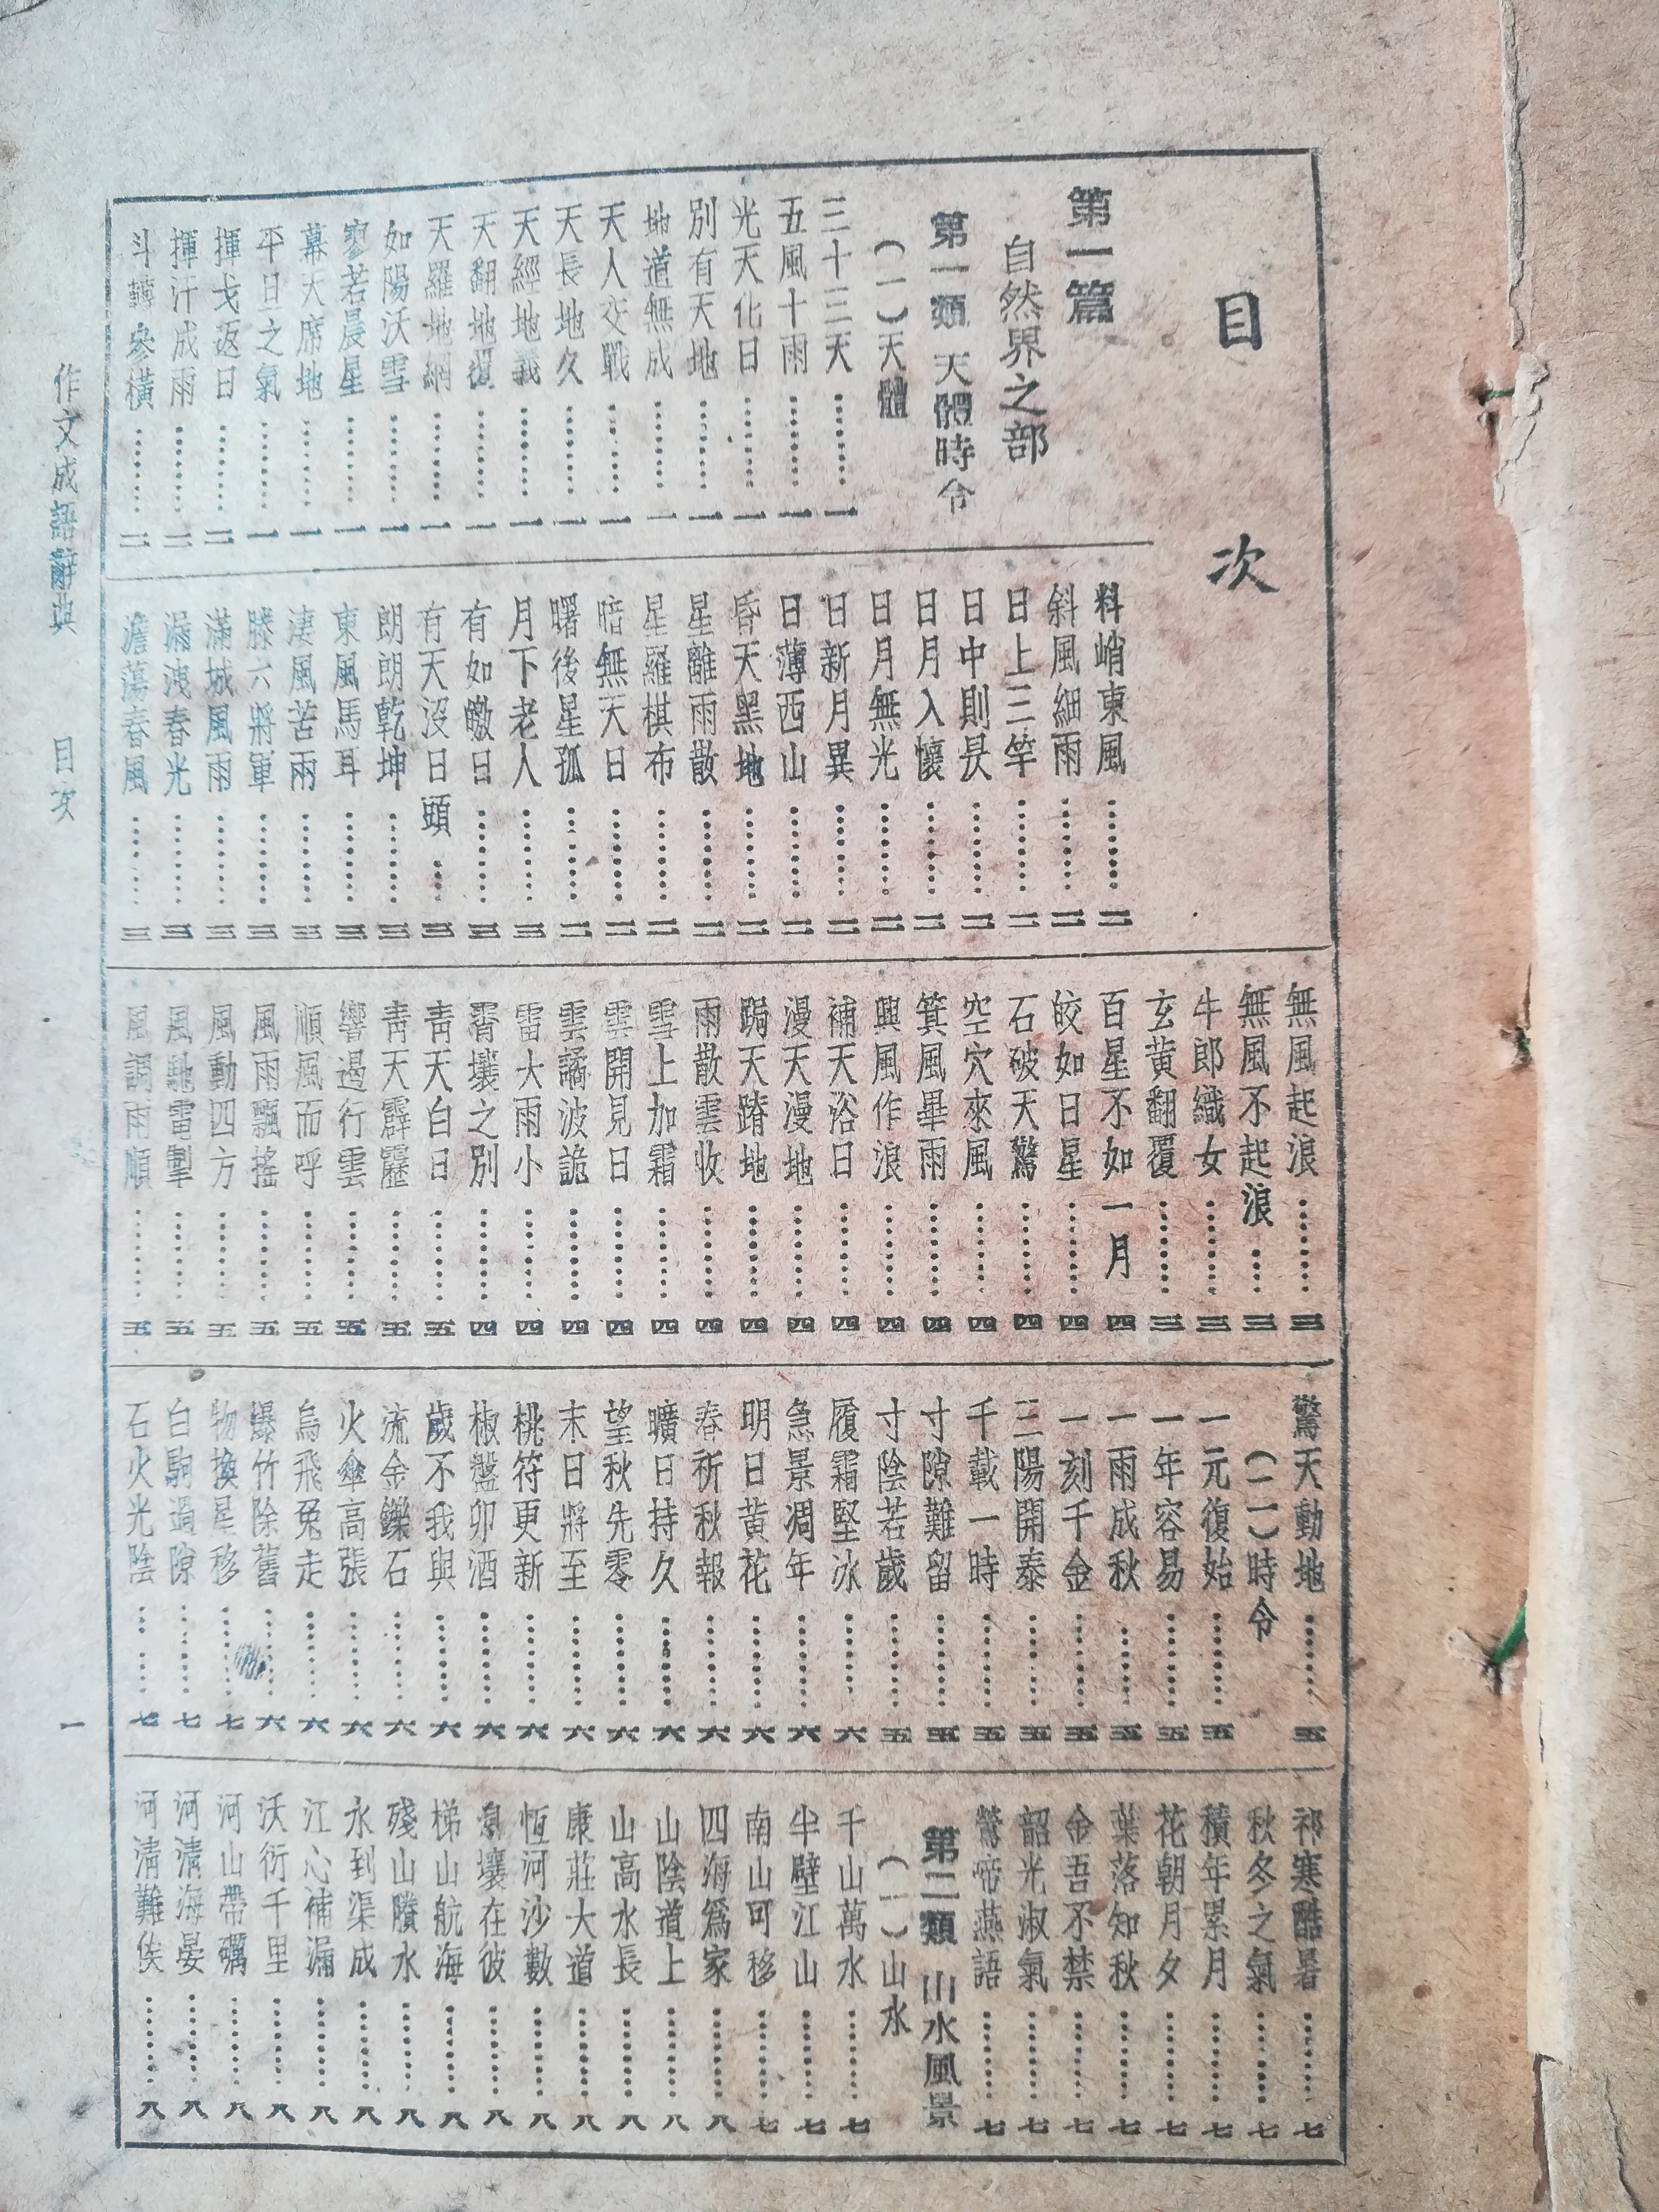 目次
第一篇
自然界之部
第一類 天體時令
(一)天體
三十三天………一
五風十雨………一
光天化日………一
別有天地………一
地道無成………一
天人交戰………一
天長地久………一
天經地義………一
天翻地覆………一
天羅地網………一
如陽沃雪………一
寥若晨星………一
幕天席地………一
平旦之氣………一
揮戈返日………二
揮汗成雨………二
斗轉參橫………二
料峭東風………二
斜風細雨………二
日上三竿………二
日中則昃………二
日月入懷………二
日月無光………二
日新月異………二
日薄西山………二
昏天黑地………二
星離雨散………二
星羅棋布………二
暗無天日………二
曙後星孤………二
月下老人………三
有如皦日………三
有天沒日頭……三
朗朗乾坤………三
東風馬耳………三
淒風苦雨………三
滕六將軍………三
滿城風雨………三
漏洩春光………三
澹蕩春風………三
無風起浪………三
無風不起浪……三
牛郎織女………三
玄黃翻覆………三
百星不如一月 四
皎如日星………四
石破天驚………四
空穴來風………四
箕風畢雨………四
興風作浪………四
補天浴日………四
漫天漫地………四
跼天蹐地………四
雨散雲收………四
雪上加霜………四
雲開見日………四
雲譎波詭………四
雷大雨小………四
霄壤之別………四
青天白日………五
青天霹靂………五
響遏行雲………五
順風而呼………五
風雨飄搖………五
風動四方………五
風馳電掣………五
風調雨順………五
驚天動地………五
(二)時令
一元復始………五
一年容易………五
一雨成秋………五
一刻千金………五
三陽開泰………五
千載一時………五
寸隙難留………五
寸陰若歲………五
履霜堅冰………六
急景凋年………六
明日黃花………六
春祈秋報………六
曠日持久………六
望秋先零………六
末日將至………六
桃符更新………六
椒盤卯酒………六
歲不我與………六
流金鑠石………六
火傘高張………六
烏飛兔走………六
爆竹除舊………六
物換星移………七
白駒過隙………七
石火光陰………七
祁寒酷暑………七
秋冬之氣………七
積年累月………七
花朝月夕………七
葉落知秋………七
金吾不禁………七
韶光淑氣………七
鶯啼燕語………七
第二類 山水風景
(一)山水
千山萬水………七
半壁江山………七
南山可移………七
四海為家………八
山陰道上………八
山高水長………八
康莊大道………八
恆河沙數………八
息壤在彼………八
梯山航海………八
殘山賸水………八
水到渠成………八
江心補漏………八
沃衍千里………八
河山帶礪………八
河清海晏………八
河清難俟………八
作文成語辭典 目次 一